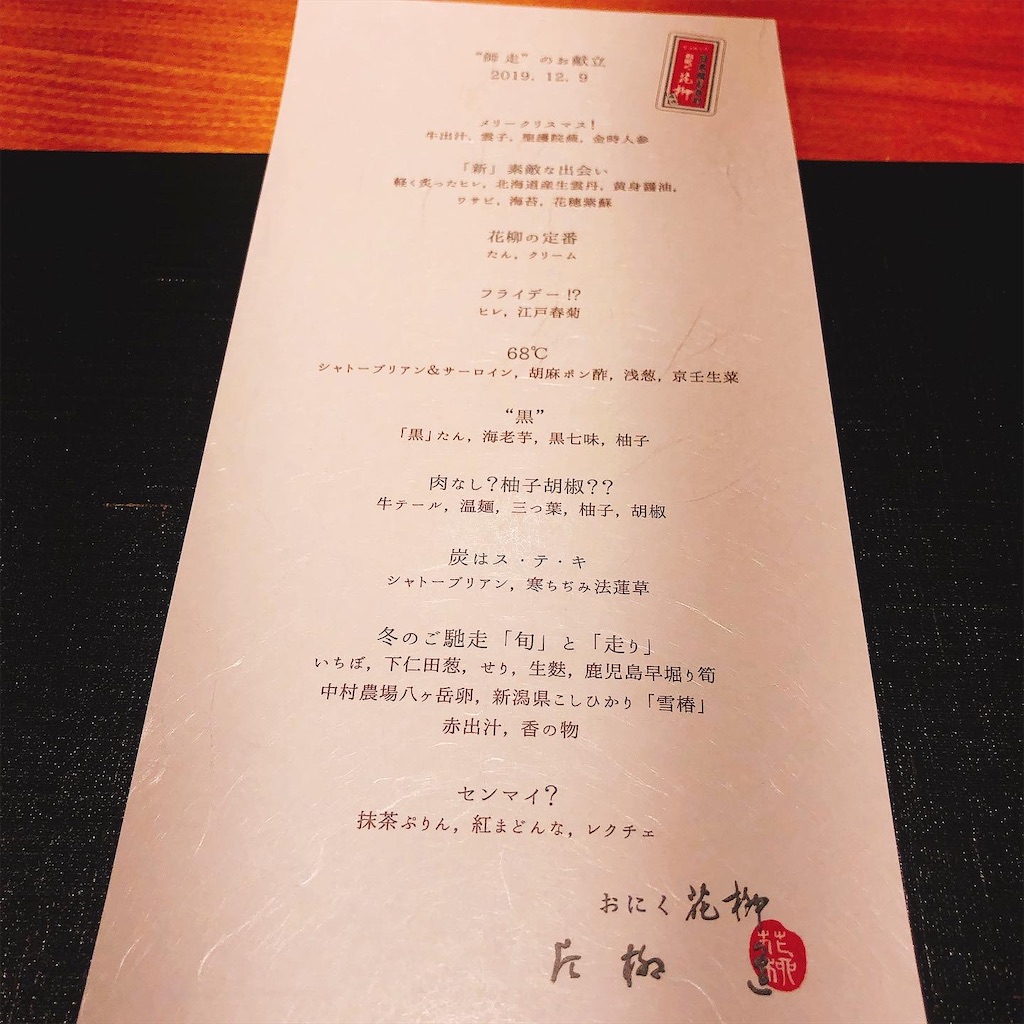 “師走”のお献立
2019. 12. 9
メリークリスマス!
牛出汁, 雲子, 聖護院蕪, 金時人参
「新」素敵な出会い
軽く炙ったヒレ, 北海道産生雲丹, 黄身醤油,
ワサビ, 海苔, 花穂紫蘇
花柳の定番
たん, クリーム
フライデー!?
ヒレ, 江戸春菊
68℃
シャトーブリアン&サーロイン, 胡麻ポン酢, 浅葱, 京壬生菜
“黒”
「黒」たん, 海老芋, 黒七味, 柚子
肉なし?柚子胡椒??
牛テール, 温麺, 三つ葉, 柚子, 胡椒
炭はス・テ・キ
シャトーブリアン, 寒ちぢみ法蓮草
冬のご馳走「旬」と「走り」
いちぼ, 下仁田葱, せり, 生麩, 鹿児島早堀り筍
中村農場八ヶ岳卵, 新潟県こしひかり「雪椿」
赤出汁, 香の物
センマイ?
抹茶ぷりん, 紅まどんな, レクチェ
おにく 花柳
片柳
花柳